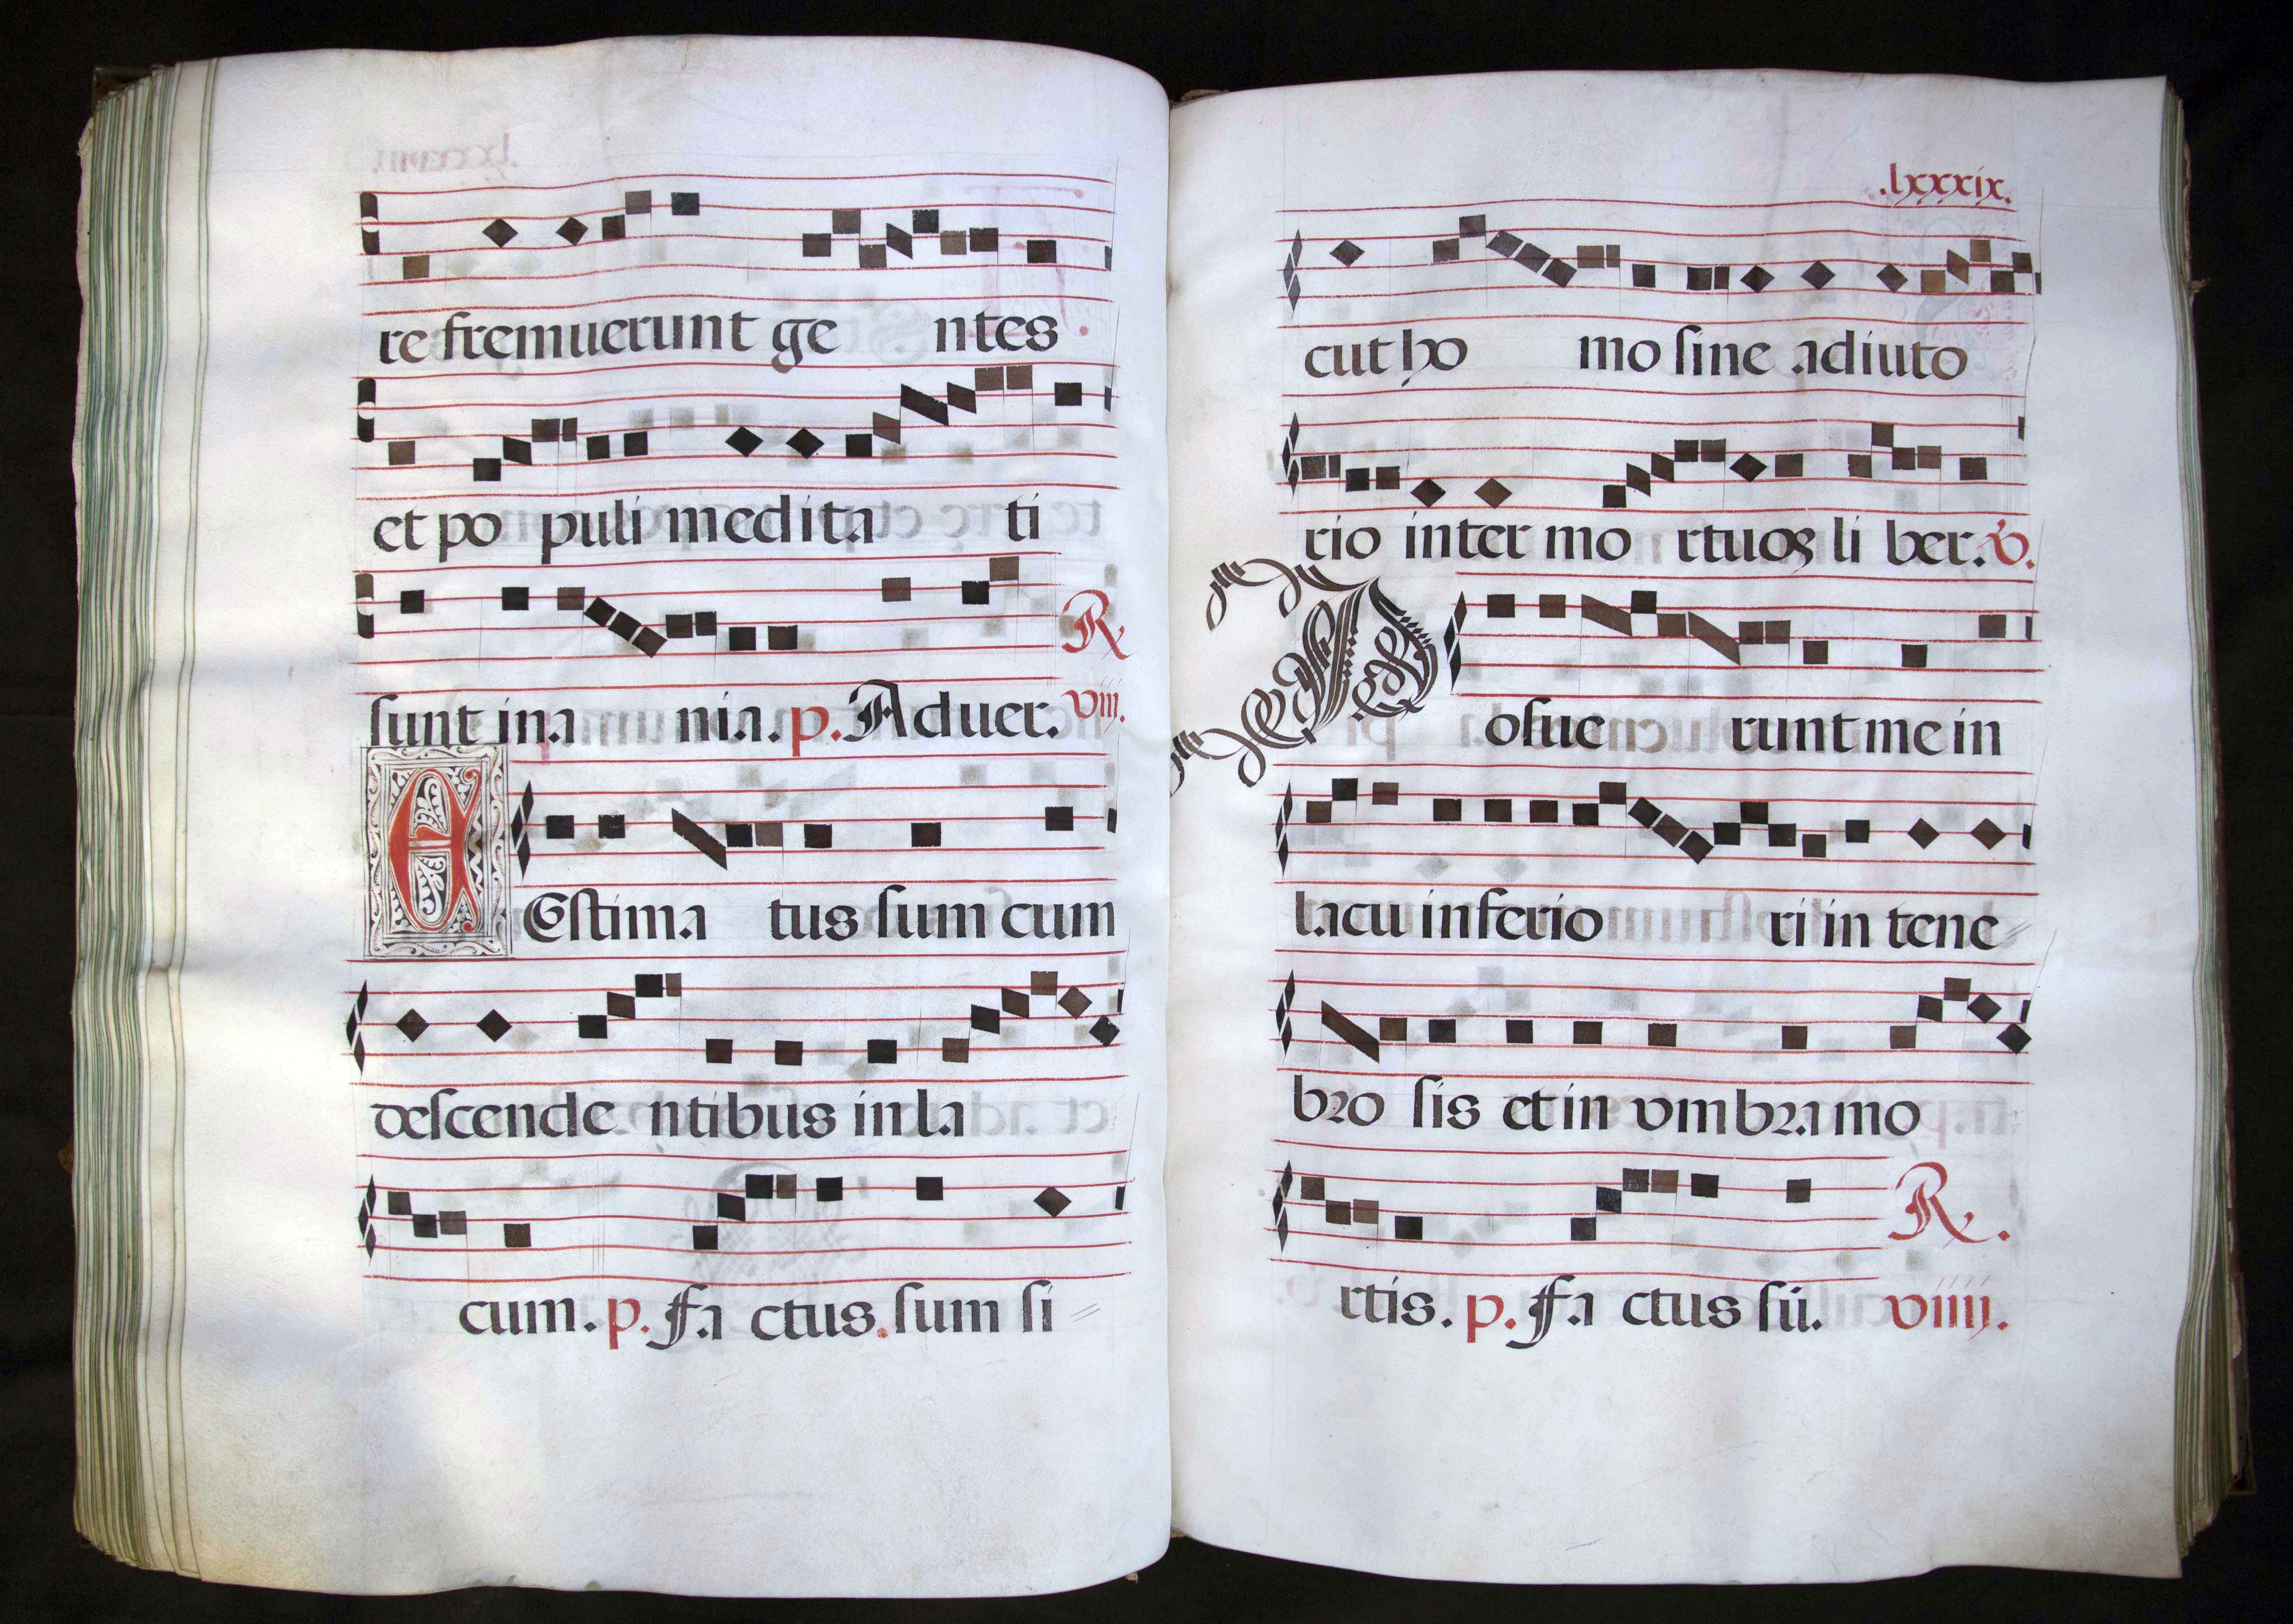 re fremuerunt ge ntes
et po puli medita ti
sunt ina nia. p. Aduer. viij.
R
E Estima tus sum cum
descende ntibus in la
cum. p. Fa ctus. sum si
.lxxxix.
cut ho mo sine adiuto
rio inter mo rtuoꝝ li ber. v.
P osue runt me in
lacu inferio ri in tene
bro sis et in vmbra mo
R.
rtis. p. Fa ctus sū. viiij.